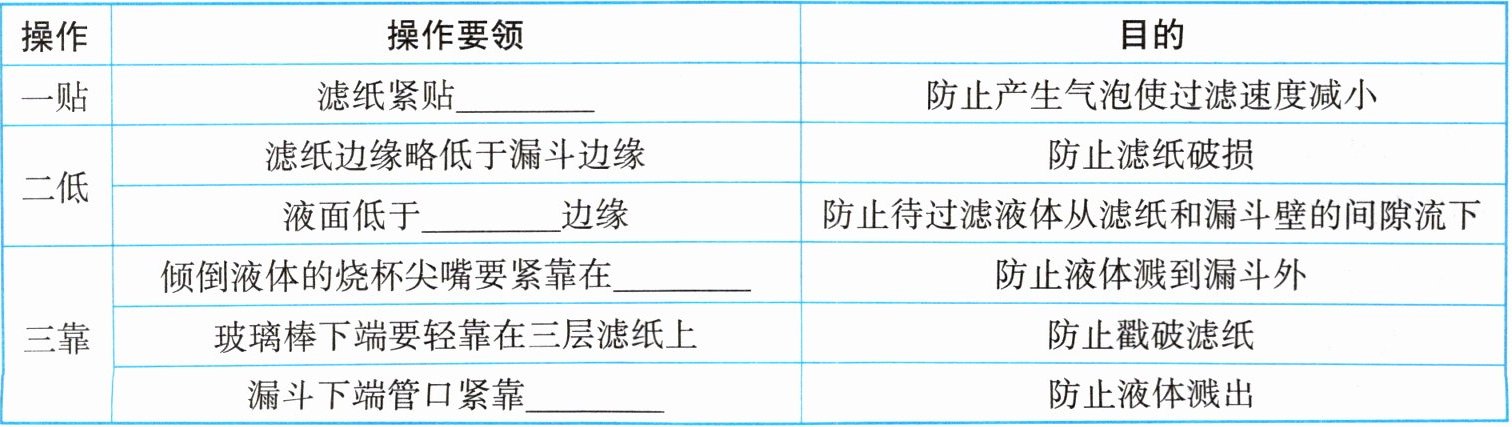 操作 操作要领 目的
一贴 滤纸紧贴________ 防止产生气泡使过滤速度减小
二低 滤纸边缘略低于漏斗边缘 防止滤纸破损
液面低于________边缘 防止待过滤液体从滤纸和漏斗壁的间隙流下
三靠 倾倒液体的烧杯尖嘴要紧靠在________ 防止液体溅到漏斗外
玻璃棒下端要轻靠在三层滤纸上 防止戳破滤纸
漏斗下端管口紧靠________ 防止液体溅出